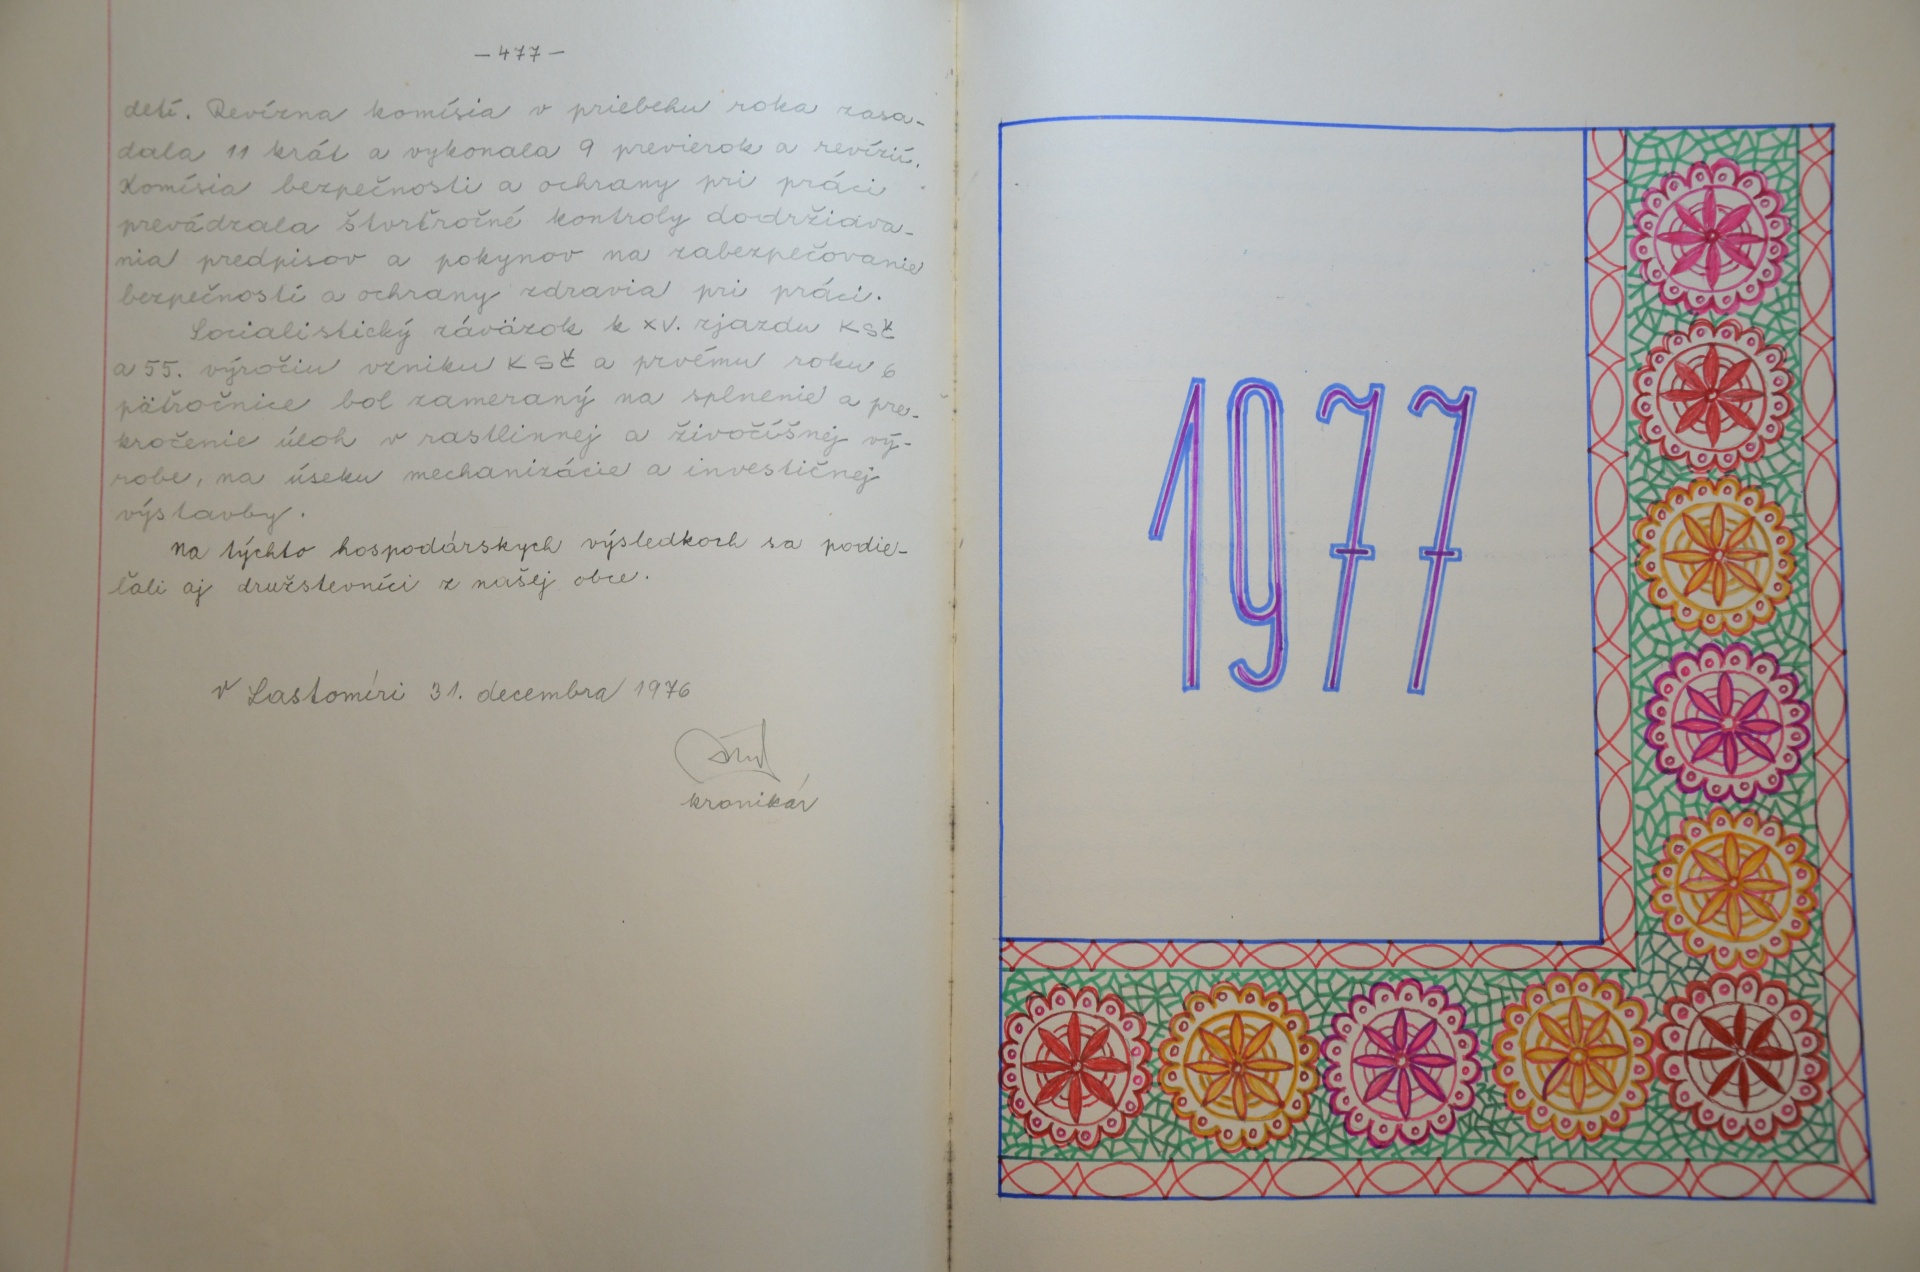 – 477 –
detí. Revízna komísia v priebehu roka zasa-
dala 11 krát a vykonala 9 previerok a revízií.
Komísia bezpečnosti a ochrany pri práci
prevádzala štvrťročné kontroly dodržiava-
nia predpisov a pokynov na zabezpečovanie
bezpečnosti a ochrany zdravia pri práci.
Socialistický záväzok k XV. zjazdu KSČ
a 55. výročiu vzniku KSČ a prvému roku 6
päťročnice bol zameraný na splnenie a pre-
kročenie úloh v rastlinnej a živočíšnej vý-
robe, na úseku mechanizácie a investičnej
výstavby.
Na týchto hospodárskych výsledkoch sa podie-
ľali aj družstevníci z našej obce.
V Lastomíri 31. decembra 1976
kronikár
1977